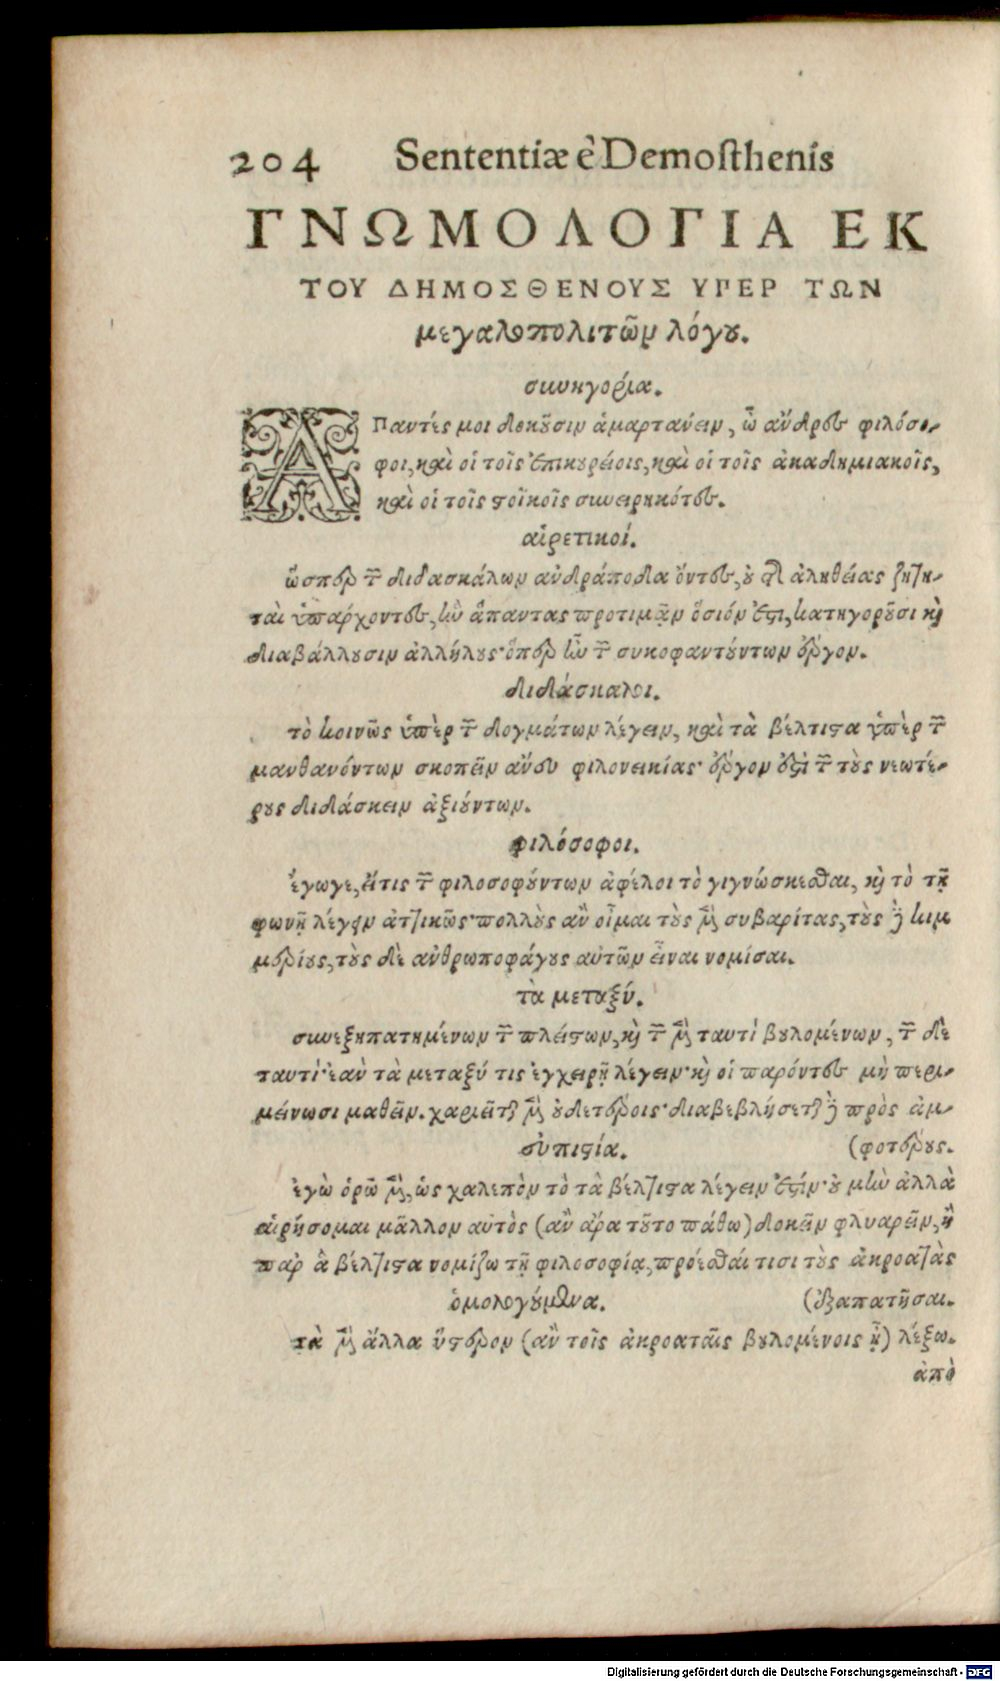 204 Sententiæ è Demosthenis
ΓΝΩΜΟΛΟΓΙΑ ΕΚ
ΤΟΥ ΔΗΜΟΣΘΕΝΟΥΣ ΥΠΕΡ ΤΩΝ
μεγαλοπολιτῶν λόγου.
συνηγορία.
ΑΠαντές μοι δοκοῦσιν ἁμαρτανέιν, ὦ ἄνδρες φιλόσο-
φοι, καὶ οἱ τοῖς ἐπικουρείοις, καὶ οἱ τοῖς ἀκαδημιακοῖς,
καὶ οἱ τοῖς στοϊκοῖς συνειρηκότες.
αἱρετικοί.
ὥσπερ τῶν διδασκάλων ἀνδράποδα ὄντες, οὐ τῆς ἀληθείας ζητη-
ταὶ ὑπάρχοντες, ἣν ἅπαντας προτιμᾷν ὅσιόν ἐστι, κατηγοροῦσι καὶ
διαβάλλουσιν ἀλλήλους· ὅπερ ἦν τῶν συκοφαντούντων ἔργον.
διδάσκαλοι.
τὸ κοινῶς ὑπὲρ τῶν δογμάτων λέγειν, καὶ τὰ βέλτιστα ὑπὲρ τῶν
μανθανόντων σκοπεῖν ἄνευ φιλονεικίας· ἔργον ἐστὶ τῶν τοὺς νεωτέ-
ρους διδάσκειν ἀξιούντων.
φιλόσοφοι.
ἔγωγε, εἴτις τῶν φιλοσοφούντων ἀφέλοι τὸ γιγνώσκεσθαι, καὶ τὸ τῇ
φωνῇ λέγειν ἀττικῶς· πολλοὺς ἂν οἶμαι τοὺς μὲν συβαρίτας, τοὺς δὲ κιμ
μερίους, τοὺς δὲ ἀνθρωποφάγους αὐτῶν εἶναι νομίσαι.
τὰ μεταξύ.
συνεξηπατημένων τῶν πλείστων, καὶ τῶν μὲν ταυτὶ βουλομένων, τῶν δὲ
ταυτί· ἐὰν τὰ μεταξύ τις ἐγχειρῇ λέγειν· καὶ οἱ παρόντες μὴ περι-
μείνωσι μαθεῖν. χαριεῖται μὲν οὐδετέροις· διαβεβλήσεται δὲ πρὸς ἀμ-
εὐπιστία. (φοτέρους.
ἐγὼ ὁρῶ μὲν, ὡς χαλεπὸν τὸ τὰ βέλτιστα λέγειν ἐστίν· οὐ μὴν ἀλλὰ
αἱρήσομαι μᾶλλον αὐτὸς (ἂν ἄρα τοῦτο πάθω) δοκεῖν φλυαρεῖν, ἢ
παρ ἃ βέλτιστα νομίζω τῇ φιλοσοφίᾳ, πρόεσθαί τισι τοὺς ἀκροατὰς
ὁμολογούμενα. (ἐξαπατῆσαι.
τὰ μὲν ἄλλα ὕστερον (ἂν τοῖς ἀκροαταῖς βουλομένοις ᾖ) λέξω.
ἀπὸ
Digitalisierung gefördert durch die Deutsche Forschungsgemeinschaft - DFG